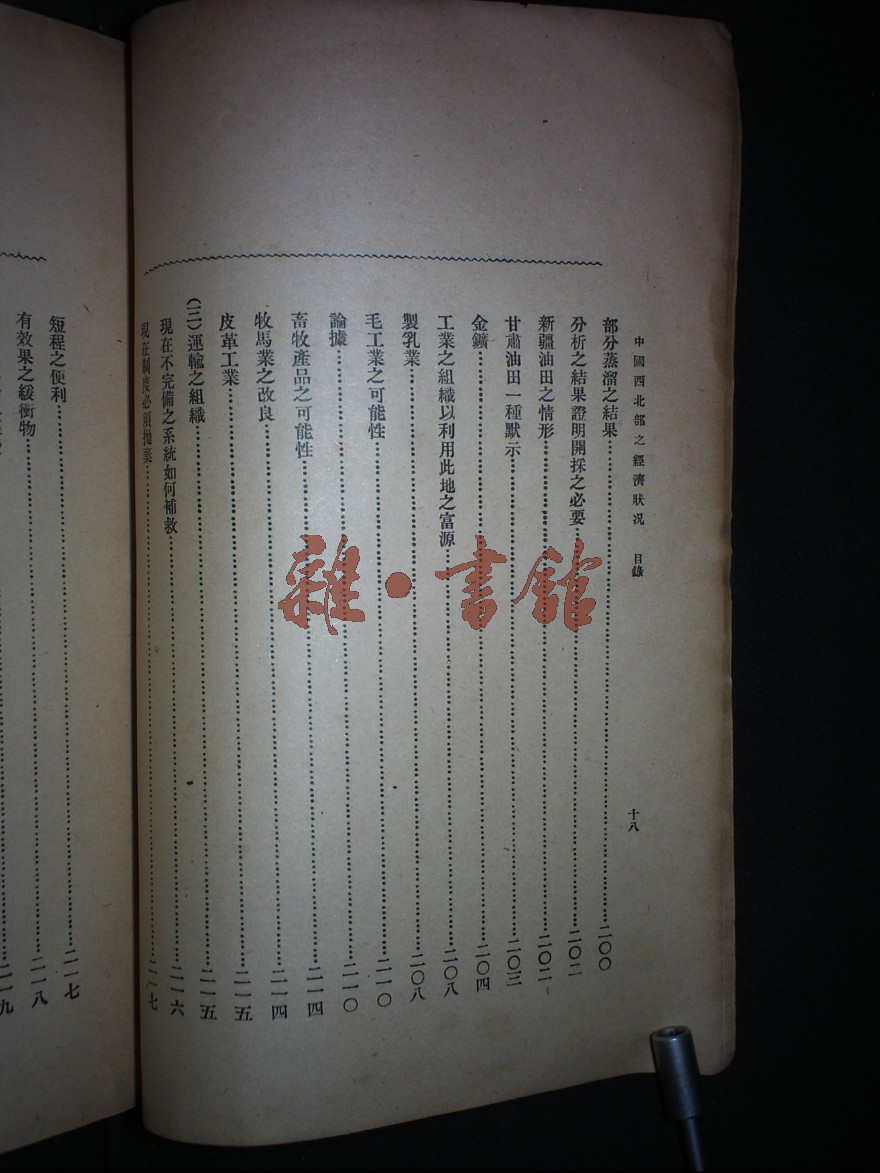 中國西北部之經濟狀况　目錄　十八
部分蒸溜之結果……二〇〇
分析之結果證明開採之必要……二〇二
新疆油田之情形……二〇二
甘肅油田一種默示……二〇三
金鑛……二〇四
工業之組織以利用此地之富源……二〇八
製乳業……二〇八
毛工業之可能性……二一〇
論據……二一〇
畜牧產品之可能性……二一四
牧馬業之改良……二一四
皮革工業……二一五
（三）運輸之組織……二一五
現在不完備之系統如何補救……二一六
現在制度必須拋棄……二一七
短程之便利……二一七
有效果之緩衝物……二一八
二一九
雜·書館